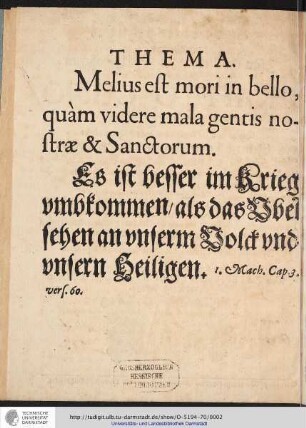 THEMA.
Melius est mori in bello,
quàm videre mala gentis no-
stræ & Sanctorum.
Es ist besser im Krieg
vmbkommen/als das Vbel
sehen an vnserm Volck vnd
vnsern Heiligen. 1. Mach. Cap. 3.
vers. 60.
GROSHERZOGLICH
HESSISCHE
TECHNISCHE
UNIVERSITÄT
DARMSTADT
http://tudigit.ulb.tu-darmstadt.de/show/O-5194-70/0002
Universitäts- und Landesbibliothek Darmstadt